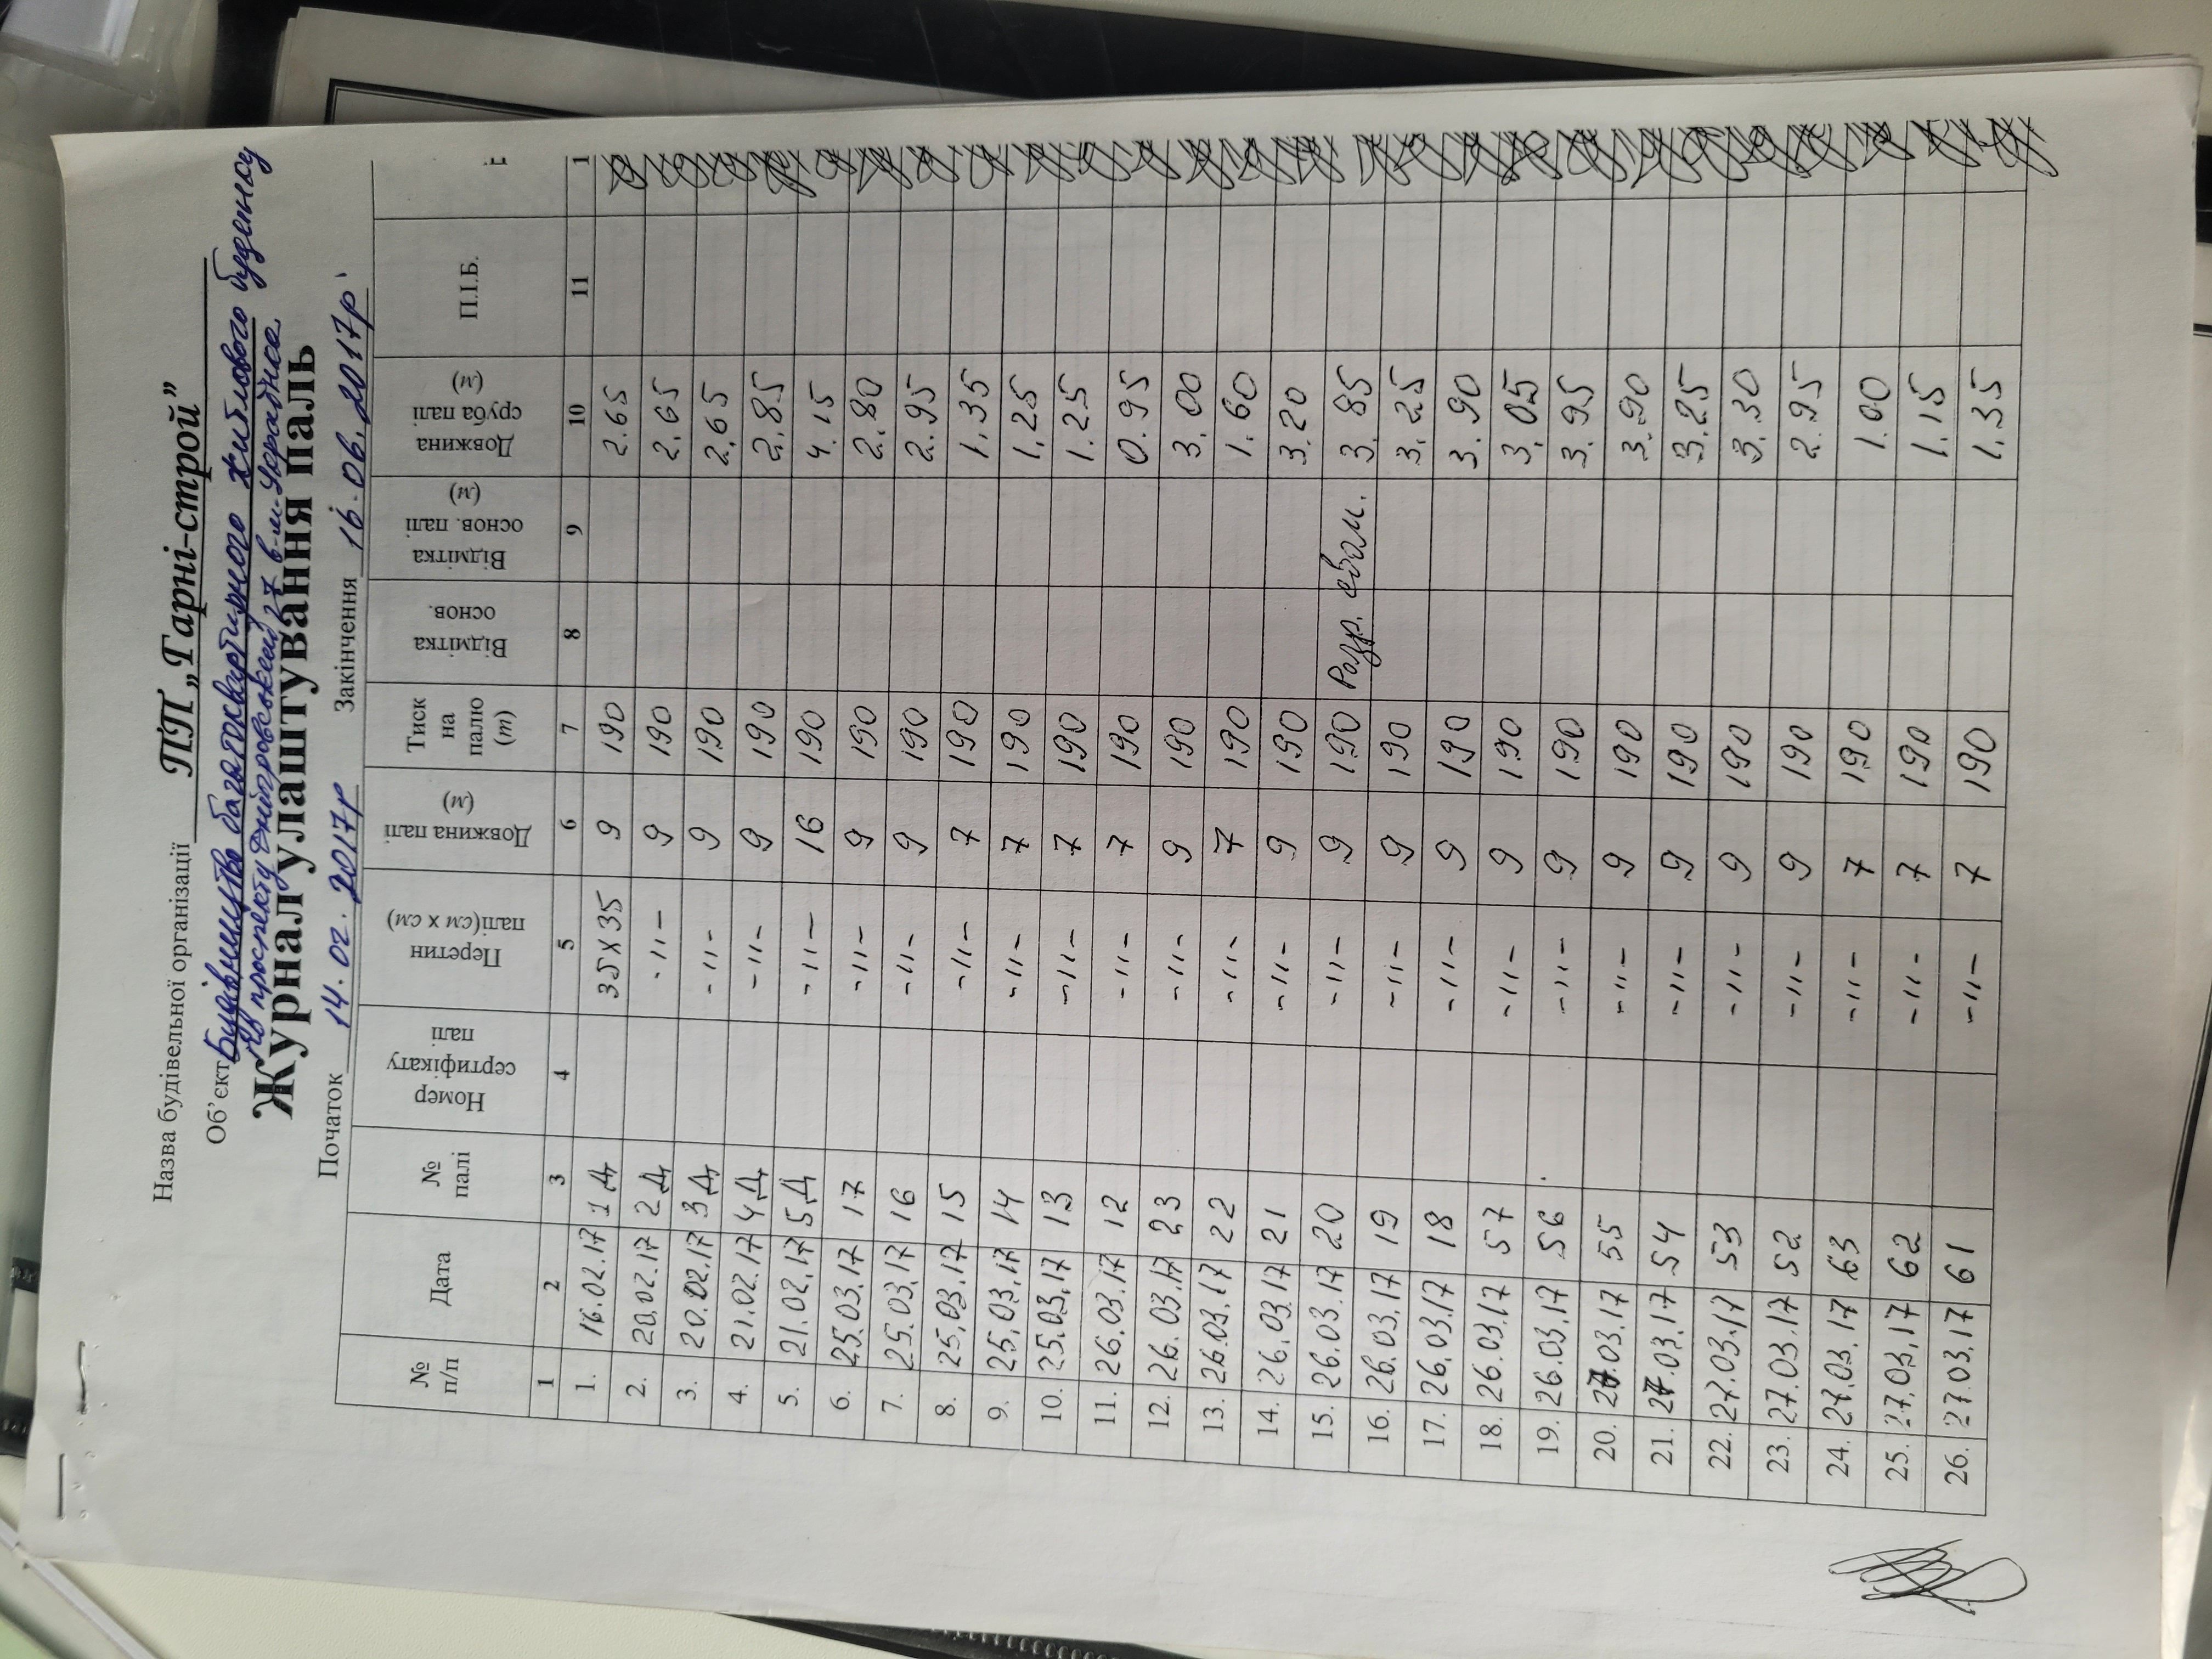 Назва будівельної організації ПП „Гарні-строй”
Об’єкт Будівництво багатоквартирного житлового будинку
по проспекту 27 в м.
Журнал улаштування паль
Початок 14.02.2017р Закінчення 16.06.2017р.
№ п/п Дата № палі Номер сертифікату палі Перетин палі(см x см) Довжина палі (м) Тиск на палю (т) Відмітка основ. Відмітка основ. палі (м) Довжина сруба палі (м) П.І.Б.
1 2 3 4 5 6 7 8 9 10 11 1
1. 16.02.17 1Д 35x35 9 190 2.65
2. 20.02.17 2Д -11- 9 190 2.65
3. 20.02.17 3Д -11- 9 190 2.65
4. 21.02.17 4Д -11- 9 190 2.85
5. 21.02.17 5Д -11- 16 190 4.15
6. 25.03.17 17 -11- 9 190 2.80
7. 25.03.17 16 -11- 9 190 2.95
8. 25.03.17 15 -11- 7 190 1.35
9. 25.03.17 14 -11- 7 190 1.25
10. 25.03.17 13 -11- 7 190 1.25
11. 26.03.17 12 -11- 7 190 0.95
12. 26.03.17 23 -11- 9 190 3.00
13. 26.03.17 22 -11- 7 190 1.60
14. 26.03.17 21 -11- 9 190 3.20
15. 26.03.17 20 -11- 9 190 Разр. 3.85
16. 26.03.17 19 -11- 9 190 3.25
17. 26.03.17 18 -11- 9 190 3.90
18. 26.03.17 57 -11- 9 190 3.05
19. 26.03.17 56 -11- 9 190 3.95
20. 27.03.17 55 -11- 9 190 3.90
21. 27.03.17 54 -11- 9 190 3.25
22. 27.03.17 53 -11- 9 190 3.30
23. 27.03.17 52 -11- 9 190 2.95
24. 27.03.17 63 -11- 7 190 1.00
25. 27.03.17 62 -11- 7 190 1.15
26. 27.03.17 61 -11- 7 190 1.35